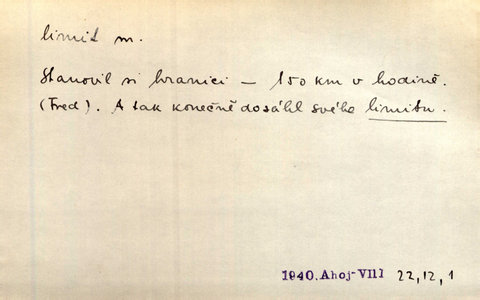 limit m.
Stanovil si hranici – 150 km v hodině.
(Fred). A tak konečně dosáhl svého limitu.
1940. Ahoj-VIII 22,12,1